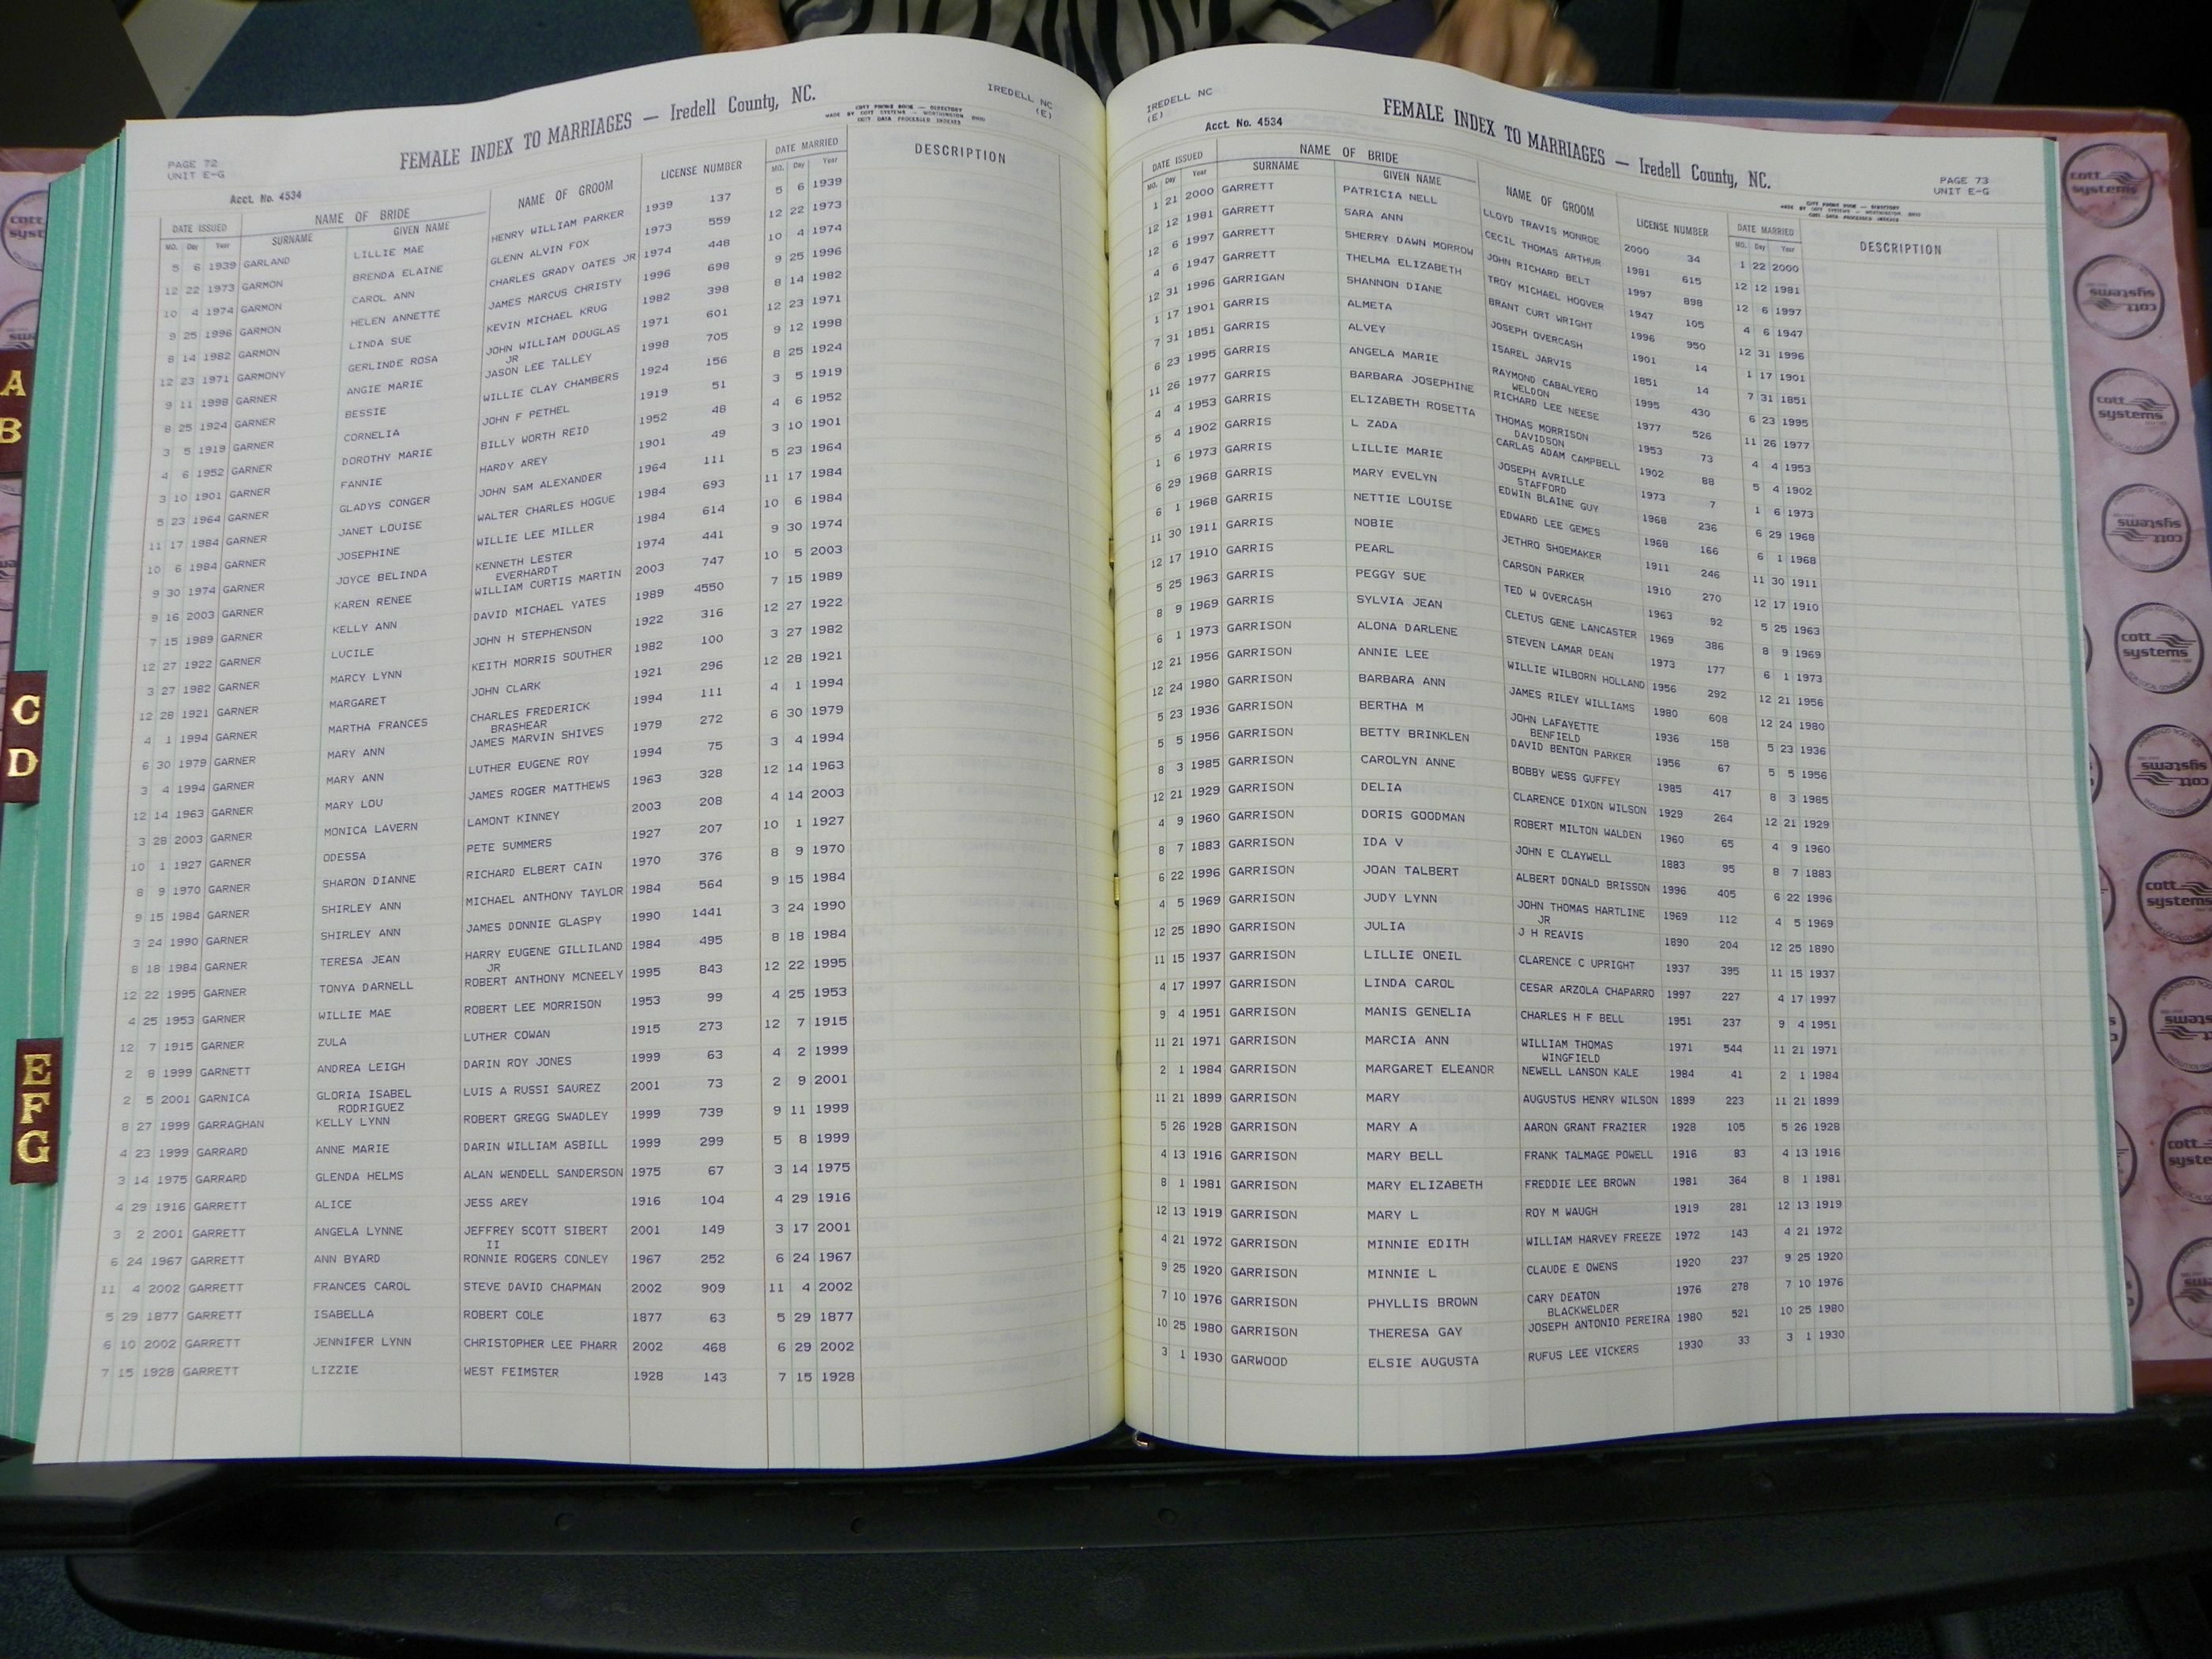 FEMALE INDEX TO MARRIAGES — Iredell County, NC.
IREDELL NC
(E)
MADE BY COTT PHONE BOOK — DIRECTORY
COTT SYSTEMS — WORTHINGTON OHIO
COTT DATA PROCESSED INDEXES
PAGE 72
UNIT E-G
Acct. No. 4534
DATE ISSUED NAME OF BRIDE NAME OF GROOM LICENSE NUMBER DATE MARRIED DESCRIPTION
MO. Day Year SURNAME GIVEN NAME MO. Day Year
5 6 1939 GARLAND LILLIE MAE HENRY WILLIAM PARKER 1939 137 5 6 1939
12 22 1973 GARMON BRENDA ELAINE GLENN ALVIN FOX 1973 559 12 22 1973
10 4 1974 GARMON CAROL ANN CHARLES GRADY OATES JR 1974 448 10 4 1974
9 25 1996 GARMON HELEN ANNETTE JAMES MARCUS CHRISTY 1996 698 9 25 1996
8 14 1982 GARMON LINDA SUE KEVIN MICHAEL KRUG 1982 398 8 14 1982
12 23 1971 GARMONY GERLINDE ROSA JOHN WILLIAM DOUGLAS 1971 601 12 23 1971
JR
9 11 1998 GARNER ANGIE MARIE JASON LEE TALLEY 1998 705 9 12 1998
8 25 1924 GARNER BESSIE WILLIE CLAY CHAMBERS 1924 156 8 25 1924
3 5 1919 GARNER CORNELIA JOHN F PETHEL 1919 51 3 5 1919
4 6 1952 GARNER DOROTHY MARIE BILLY WORTH REID 1952 48 4 6 1952
3 10 1901 GARNER FANNIE HARDY AREY 1901 49 3 10 1901
5 23 1964 GARNER GLADYS CONGER JOHN SAM ALEXANDER 1964 111 5 23 1964
11 17 1984 GARNER JANET LOUISE WALTER CHARLES HOGUE 1984 693 11 17 1984
10 6 1984 GARNER JOSEPHINE WILLIE LEE MILLER 1984 614 10 6 1984
9 30 1974 GARNER JOYCE BELINDA KENNETH LESTER 1974 441 9 30 1974
EVERHARDT
9 16 2003 GARNER KAREN RENEE WILLIAM CURTIS MARTIN 2003 747 10 5 2003
7 15 1989 GARNER KELLY ANN DAVID MICHAEL YATES 1989 4550 7 15 1989
12 27 1922 GARNER LUCILE JOHN H STEPHENSON 1922 316 12 27 1922
3 27 1982 GARNER MARCY LYNN KEITH MORRIS SOUTHER 1982 100 3 27 1982
12 28 1921 GARNER MARGARET JOHN CLARK 1921 296 12 28 1921
4 1 1994 GARNER MARTHA FRANCES CHARLES FREDERICK 1994 111 4 1 1994
BRASHEAR
6 30 1979 GARNER MARY ANN JAMES MARVIN SHIVES 1979 272 6 30 1979
3 4 1994 GARNER MARY ANN LUTHER EUGENE ROY 1994 75 3 4 1994
12 14 1963 GARNER MARY LOU JAMES ROGER MATTHEWS 1963 328 12 14 1963
3 28 2003 GARNER MONICA LAVERN LAMONT KINNEY 2003 208 4 14 2003
10 1 1927 GARNER ODESSA PETE SUMMERS 1927 207 10 1 1927
8 9 1970 GARNER SHARON DIANNE RICHARD ELBERT CAIN 1970 376 8 9 1970
9 15 1984 GARNER SHIRLEY ANN MICHAEL ANTHONY TAYLOR 1984 564 9 15 1984
3 24 1990 GARNER SHIRLEY ANN JAMES DONNIE GLASPY 1990 1441 3 24 1990
8 18 1984 GARNER TERESA JEAN HARRY EUGENE GILLILAND 1984 495 8 18 1984
JR
12 22 1995 GARNER TONYA DARNELL ROBERT ANTHONY MCNEELY 1995 843 12 22 1995
4 25 1953 GARNER WILLIE MAE ROBERT LEE MORRISON 1953 99 4 25 1953
12 7 1915 GARNER ZULA LUTHER COWAN 1915 273 12 7 1915
2 8 1999 GARNETT ANDREA LEIGH DARIN ROY JONES 1999 63 4 2 1999
2 5 2001 GARNICA GLORIA ISABEL LUIS A RUSSI SAUREZ 2001 73 2 9 2001
RODRIGUEZ
8 27 1999 GARRAGHAN KELLY LYNN ROBERT GREGG SWADLEY 1999 739 9 11 1999
4 23 1999 GARRARD ANNE MARIE DARIN WILLIAM ASBILL 1999 299 5 8 1999
3 14 1975 GARRARD GLENDA HELMS ALAN WENDELL SANDERSON 1975 67 3 14 1975
4 29 1916 GARRETT ALICE JESS AREY 1916 104 4 29 1916
3 2 2001 GARRETT ANGELA LYNNE JEFFREY SCOTT SIBERT 2001 149 3 17 2001
II
6 24 1967 GARRETT ANN BYARD RONNIE ROGERS CONLEY 1967 252 6 24 1967
11 4 2002 GARRETT FRANCES CAROL STEVE DAVID CHAPMAN 2002 909 11 4 2002
5 29 1877 GARRETT ISABELLA ROBERT COLE 1877 63 5 29 1877
6 10 2002 GARRETT JENNIFER LYNN CHRISTOPHER LEE PHARR 2002 468 6 29 2002
7 15 1928 GARRETT LIZZIE WEST FEIMSTER 1928 143 7 15 1928
IREDELL NC
(E)
Acct. No. 4534
FEMALE INDEX TO MARRIAGES — Iredell County, NC.
MADE BY COTT PHONE BOOK — DIRECTORY
COTT SYSTEMS — WORTHINGTON OHIO
COTT DATA PROCESSED INDEXES
PAGE 73
UNIT E-G
DATE ISSUED NAME OF BRIDE NAME OF GROOM LICENSE NUMBER DATE MARRIED DESCRIPTION
MO. Day Year SURNAME GIVEN NAME MO. Day Year
1 21 2000 GARRETT PATRICIA NELL LLOYD TRAVIS MONROE 2000 34 1 22 2000
12 12 1981 GARRETT SARA ANN CECIL THOMAS ARTHUR 1981 615 12 12 1981
12 6 1997 GARRETT SHERRY DAWN MORROW JOHN RICHARD BELT 1997 898 12 6 1997
4 6 1947 GARRETT THELMA ELIZABETH TROY MICHAEL HOOVER 1947 105 4 6 1947
12 31 1996 GARRIGAN SHANNON DIANE BRANT CURT WRIGHT 1996 950 12 31 1996
1 17 1901 GARRIS ALMETA JOSEPH OVERCASH 1901 14 1 17 1901
7 31 1851 GARRIS ALVEY ISAREL JARVIS 1851 14 7 31 1851
6 23 1995 GARRIS ANGELA MARIE RAYMOND CABALYERO 1995 430 6 23 1995
WELDON
11 26 1977 GARRIS BARBARA JOSEPHINE RICHARD LEE NEESE 1977 526 11 26 1977
4 4 1953 GARRIS ELIZABETH ROSETTA THOMAS MORRISON 1953 73 4 4 1953
DAVIDSON
5 4 1902 GARRIS L ZADA CARLAS ADAM CAMPBELL 1902 88 5 4 1902
1 6 1973 GARRIS LILLIE MARIE JOSEPH AVRILLE 1973 7 1 6 1973
STAFFORD
6 29 1968 GARRIS MARY EVELYN EDWIN BLAINE GUY 1968 236 6 29 1968
6 1 1968 GARRIS NETTIE LOUISE EDWARD LEE GEMES 1968 166 6 1 1968
11 30 1911 GARRIS NOBIE JETHRO SHOEMAKER 1911 246 11 30 1911
12 17 1910 GARRIS PEARL CARSON PARKER 1910 270 12 17 1910
5 25 1963 GARRIS PEGGY SUE TED W OVERCASH 1963 92 5 25 1963
8 9 1969 GARRIS SYLVIA JEAN CLETUS GENE LANCASTER 1969 386 8 9 1969
6 1 1973 GARRISON ALONA DARLENE STEVEN LAMAR DEAN 1973 177 6 1 1973
12 21 1956 GARRISON ANNIE LEE WILLIE WILBORN HOLLAND 1956 292 12 21 1956
12 24 1980 GARRISON BARBARA ANN JAMES RILEY WILLIAMS 1980 608 12 24 1980
5 23 1936 GARRISON BERTHA M JOHN LAFAYETTE 1936 158 5 23 1936
BENFIELD
5 5 1956 GARRISON BETTY BRINKLEN DAVID BENTON PARKER 1956 67 5 5 1956
8 3 1985 GARRISON CAROLYN ANNE BOBBY WESS GUFFEY 1985 417 8 3 1985
12 21 1929 GARRISON DELIA CLARENCE DIXON WILSON 1929 264 12 21 1929
4 9 1960 GARRISON DORIS GOODMAN ROBERT MILTON WALDEN 1960 65 4 9 1960
8 7 1883 GARRISON IDA V JOHN E CLAYWELL 1883 95 8 7 1883
6 22 1996 GARRISON JOAN TALBERT ALBERT DONALD BRISSON 1996 405 6 22 1996
4 5 1969 GARRISON JUDY LYNN JOHN THOMAS HARTLINE 1969 112 4 5 1969
JR
12 25 1890 GARRISON JULIA J H REAVIS 1890 204 12 25 1890
11 15 1937 GARRISON LILLIE ONEIL CLARENCE C UPRIGHT 1937 395 11 15 1937
4 17 1997 GARRISON LINDA CAROL CESAR ARZOLA CHAPARRO 1997 227 4 17 1997
9 4 1951 GARRISON MANIS GENELIA CHARLES H F BELL 1951 237 9 4 1951
11 21 1971 GARRISON MARCIA ANN WILLIAM THOMAS 1971 544 11 21 1971
WINGFIELD
2 1 1984 GARRISON MARGARET ELEANOR NEWELL LANSON KALE 1984 41 2 1 1984
11 21 1899 GARRISON MARY AUGUSTUS HENRY WILSON 1899 223 11 21 1899
5 26 1928 GARRISON MARY A AARON GRANT FRAZIER 1928 105 5 26 1928
4 13 1916 GARRISON MARY BELL FRANK TALMAGE POWELL 1916 83 4 13 1916
8 1 1981 GARRISON MARY ELIZABETH FREDDIE LEE BROWN 1981 364 8 1 1981
12 13 1919 GARRISON MARY L ROY M WAUGH 1919 281 12 13 1919
4 21 1972 GARRISON MINNIE EDITH WILLIAM HARVEY FREEZE 1972 143 4 21 1972
9 25 1920 GARRISON MINNIE L CLAUDE E OWENS 1920 237 9 25 1920
7 10 1976 GARRISON PHYLLIS BROWN CARY DEATON 1976 278 7 10 1976
BLACKWELDER
10 25 1980 GARRISON THERESA GAY JOSEPH ANTONIO PEREIRA 1980 521 10 25 1980
3 1 1930 GARWOOD ELSIE AUGUSTA RUFUS LEE VICKERS 1930 33 3 1 1930
A
B
C
D
E
F
G
cott
systems
cott
systems
cott
systems
cott
systems
cott
systems
cott
systems
cott
systems